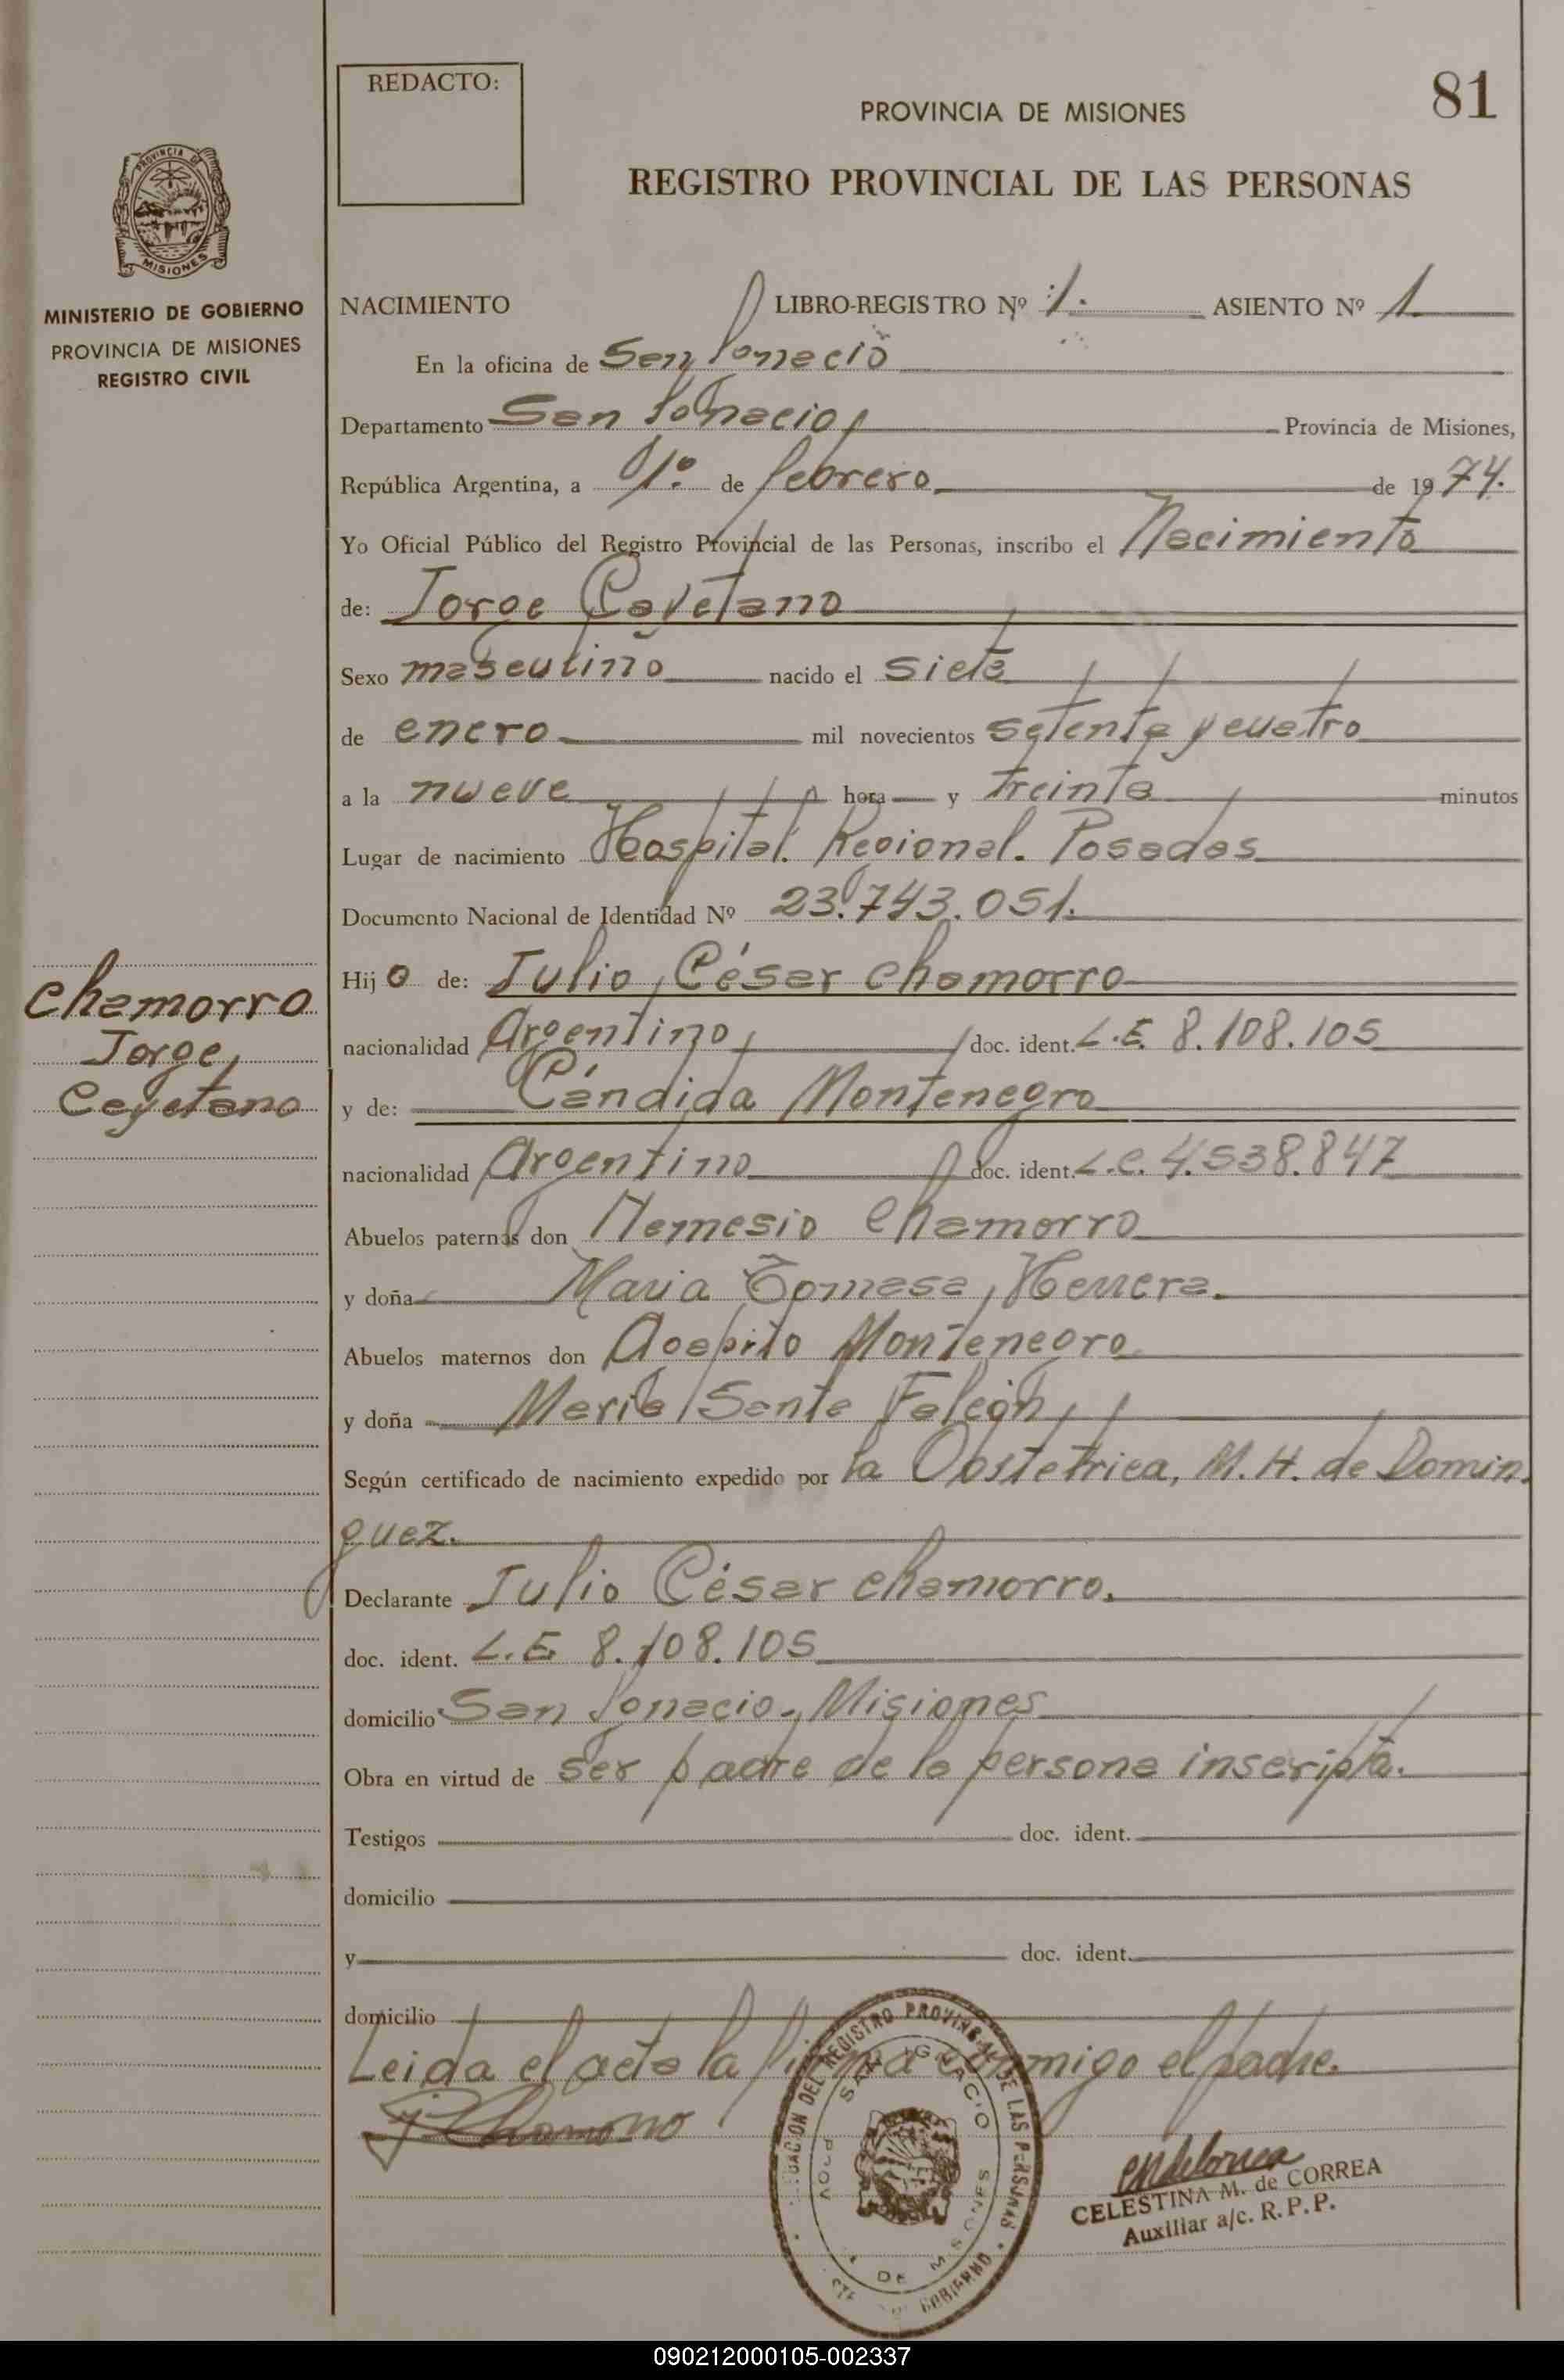 REDACTO:
81
PROVINCIA DE MISIONES
REGISTRO PROVINCIAL DE LAS PERSONAS
PROVINCIA DE
MISIONES
MINISTERIO DE GOBIERNO
PROVINCIA DE MISIONES
REGISTRO CIVIL
NACIMIENTO LIBRO-REGISTRO Nº 1. ASIENTO Nº 1
En la oficina de San Ignacio
Departamento San Ignacio Provincia de Misiones,
República Argentina, a 1º. de febrero de 1974.
Yo Oficial Público del Registro Provincial de las Personas, inscribo el Nacimiento
de: Jorge Cayetano
Sexo masculino nacido el siete
de enero mil novecientos setenta y cuatro
a la nueve hora y treinta minutos
Lugar de nacimiento Hospital Regional. Posadas
Documento Nacional de Identidad Nº 23.743.051.
Hijo de: Julio César Chamorro
nacionalidad Argentino doc. ident. L.E. 8.108.105
y de: Cándida Montenegro
nacionalidad Argentino doc. ident. L.C. 4.538.847
Abuelos paternos don Nemesio Chamorro
y doña Maria Tomasa Herrera.
Abuelos maternos don Agapito Montenegro
y doña Maria Santa Falcón
Según certificado de nacimiento expedido por la Obstetrica, M. H. de Domin-
guez.
Declarante Julio César Chamorro.
doc. ident. L.E 8.108.105
domicilio San Ignacio. Misiones
Obra en virtud de ser padre de la persona inscripta.
Testigos doc. ident.
domicilio
y doc. ident.
domicilio
Leida el acta la firma conmigo el padre.
Chamorro
Jorge
Cayetano
J Chamorro
DEL REGISTRO PROVINCIAL DE LAS PERSONAS
SAN IGNACIO
PROV. DE MISIONES
GOBIERNO
CELESTINA M. de CORREA
Auxiliar a/c. R.P.P.
090212000105-002337